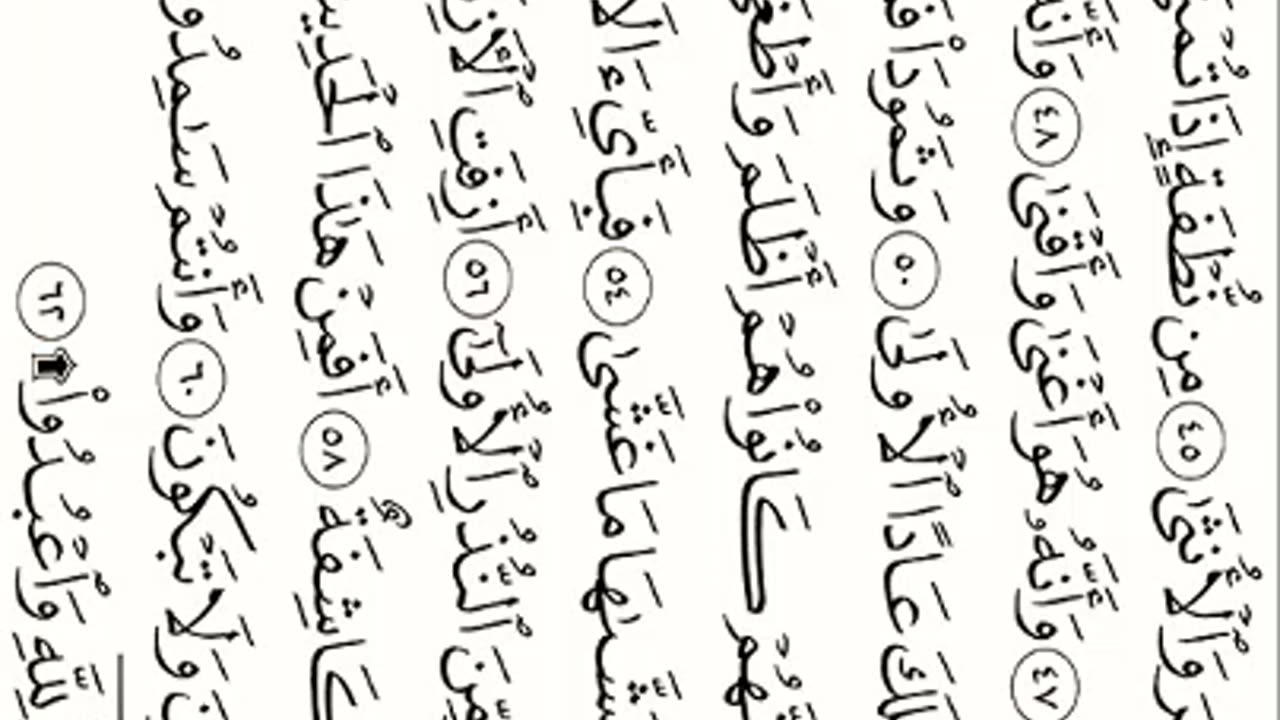 رَ وَٱلْأُنثَىٰ ٤٥ مِن نُّطْفَةٍ إِذَا تُمْنَىٰ
٤٧ وَأَنَّهُۥ هُوَ أَغْنَىٰ وَأَقْنَىٰ ٤٨ وَأَنَّهُ
لَكَ عَادًا ٱلْأُولَىٰ ٥٠ وَثَمُودَا۟ فَ
هُمْ كَانُوا۟ هُمْ أَظْلَمَ وَأَطْغَىٰ
شَّىٰهَا مَا غَشَّىٰ ٥٤ فَبِأَىِّ ءَالَا
مِّنَ ٱلنُّذُرِ ٱلْأُولَىٰٓ ٥٦ أَزِفَتِ ٱلْأَزِ
كَاشِفَةٌ ٥٨ أَفَمِنْ هَٰذَا ٱلْحَدِي
نَ وَلَا تَبْكُونَ ٦٠ وَأَنتُمْ سَٰمِدُو
لِلَّهِ وَٱعْبُدُوا۟ ٦٢